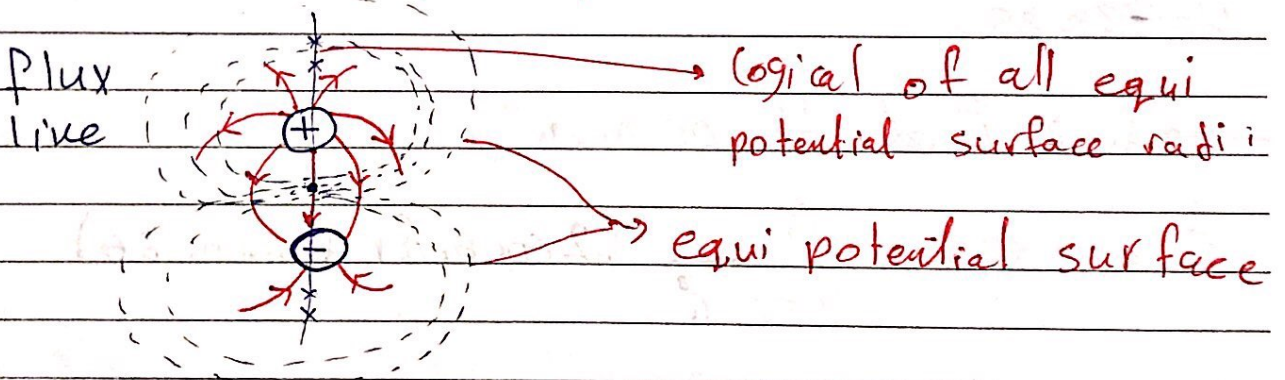 flux
live
+
-
logical of all equi
potential surface radii
equi potential surface